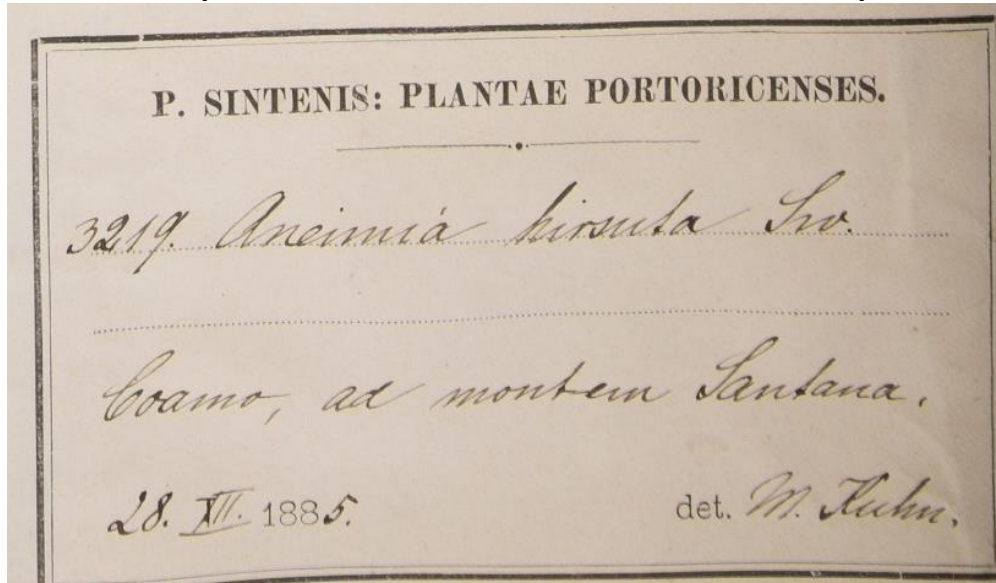 P. SINTENIS: PLANTAE PORTORICENSES.
3219. Aneimia hirsuta Sw.
Coamo, ad montem Santana.
28. XII. 1885. det. M. Kuhn.